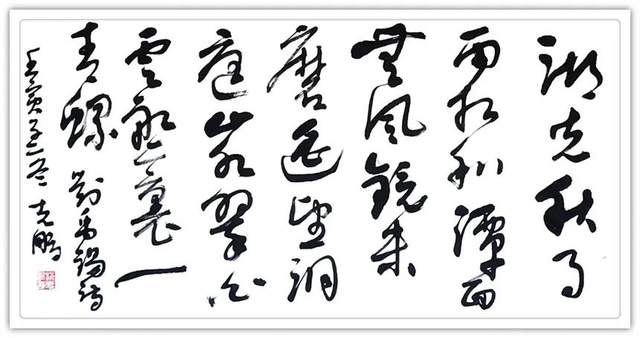 湖光秋月
两相和潭面
無风镜未
磨遥望洞
庭山水翠白
裏一
青螺 劉禹锡诗
壬寅冬 克鹏